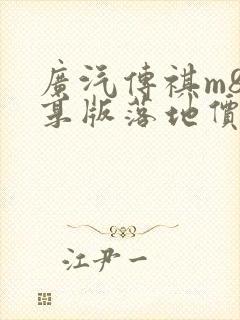 廣汽傳祺m8
某版落地價
江尹一